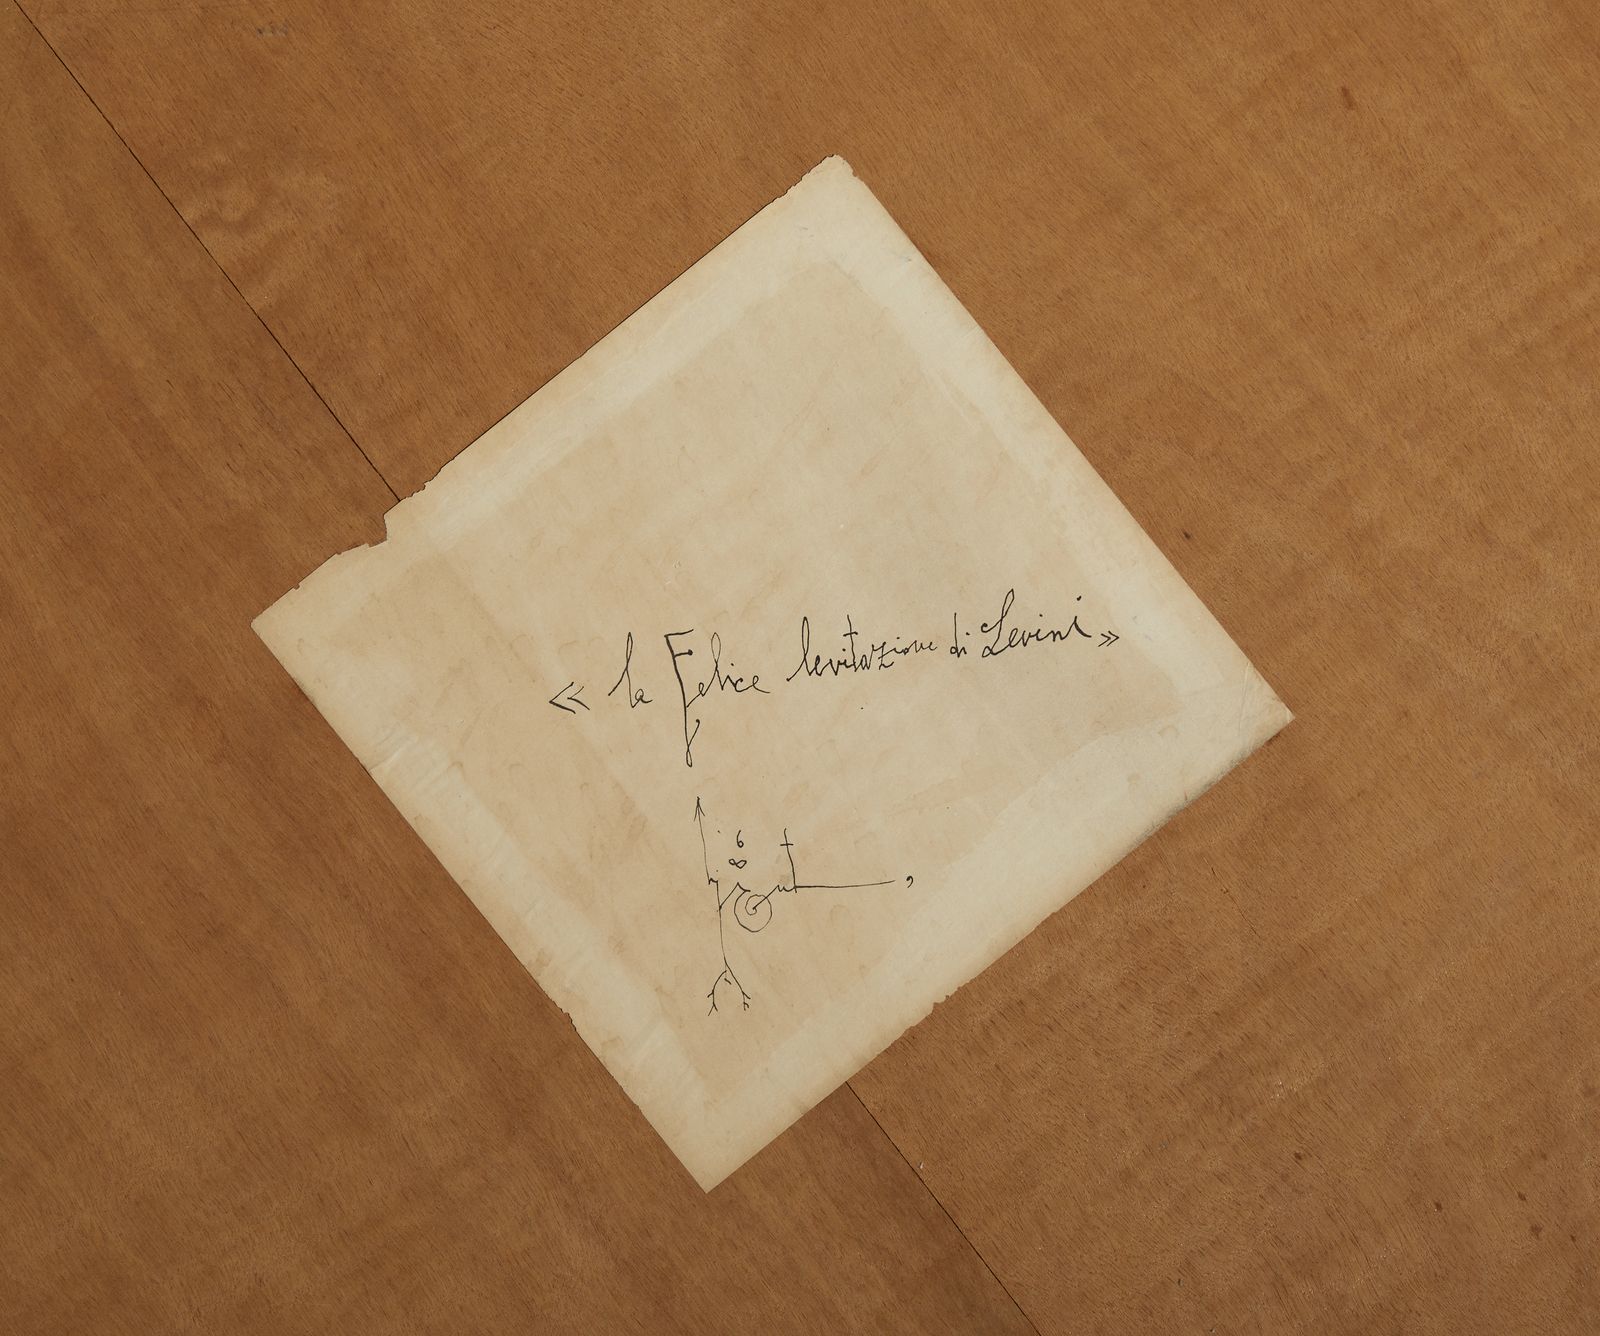 « la Felice levitazione di Levini »